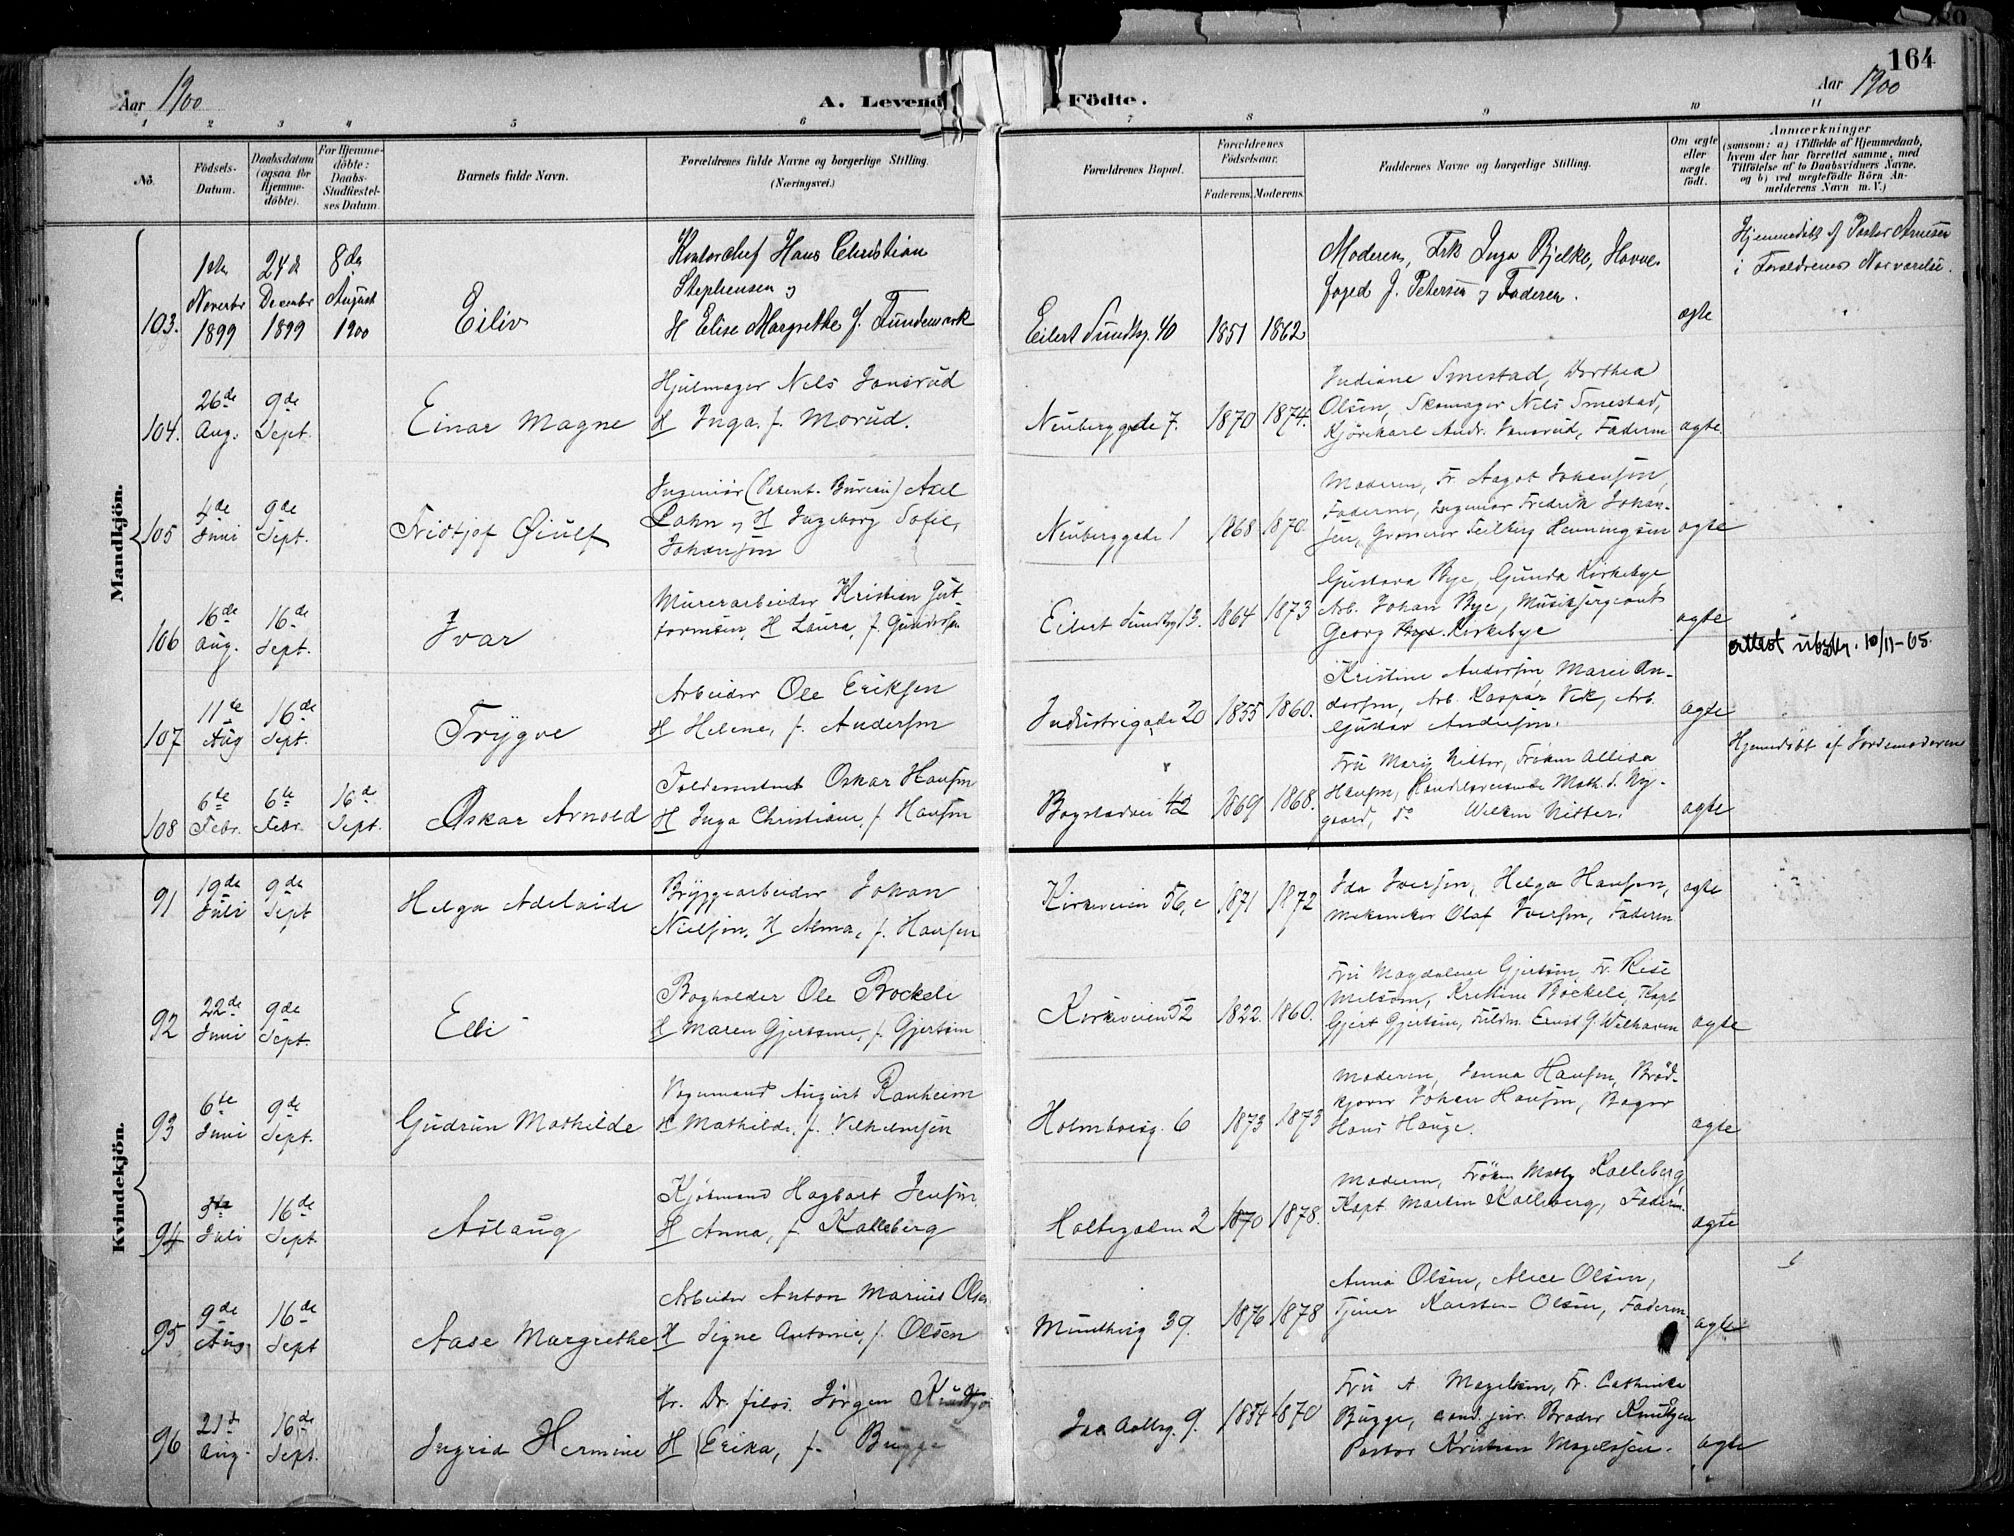 164
Aar 1900
A. Levend Födte.
Aar 1900
1 2 3 4 5 6 7 8 9 10 11
No.
Födsels-Datum.
Daabsdatum (ogsaa for Hjemme-döbte).
For Hjemme-döbte: Daabs-Stadfæstel-ses Datum.
Barnets fulde Navn.
Forældrenes fulde Navne og borgerlige Stilling.
(Næringsvei.)
Forældrenes Bopæl.
Forældrenes Födselsaar.
Faderens. Moderens.
Faddernes Navne og borgerlige Stilling.
Om ægte eller uægte födt.
Anmærkninger
(saasom: a) i Tilfælde af Hjemmedaab,
hvem der har forrettet samme, med
Tilföielse af to Daabsvidners Navne.
og b) ved uægtefödte Börn An-
melderens Navn m. V.)
Mandkjön.
103. 1ste Novembr 1899 24de Decembr 1899 8de August 1900
Eiliv
Kontorchef Hans Christian
Stephensen og
H Elise Margrethe f. Tundemark
Eilert Sundtsg. 40 1851 1862
Moderen, Frk Inga Bjelke, Havne-
foged J. Petersen og Faderen.
ægte
Hjemmedöbt af Pastor Arnesen
i Forældrenes Nærværelse.
104. 26de Aug. 9de Sept.
Einar Magne
Hjulmager Nils Jonsrud
H Inga f. Morud.
Neuberggade 7. 1870 1874.
Indiane Smestad, Dorthea
Olsen, Skomager Nils Smestad,
Kjørekarl Andr. Jonsrud, Faderen
ægte.
105 4de Juni 9de Sept.
Fridtjof Øiulf
Ingeniør (Patent. Bureau) Axel
Lahn og H Ingeborg Sofie,
Johansen
Neuberggade 1 1868 1870.
Moderen, Fr. Aagot Johansen,
Faderen, Ingeniør Fredrik Johan-
sen, Grosserer Feilberg Henningsen
ægte
106 16de Aug. 16de Sept.
Ivar
Murerarbeider Kristian Gut
tormsen, H Laura, f. Gundersen
Eilert Sundtsg 13. 1864 1873
Gustava Bye, Gunda Kirkebye,
Arb. Johan Bye, Musiksergeant
Georg Kirkebye
ægte
attest utstty. 10/11-65.
107 11te Aug 16de Sept.
Trygve
Arbeider Ole Eriksen
H Helene, f. Andersen
Industrigade 20 1855 1860.
Kristine Andersen, Marie An-
dersen, Arb. Kaspar Vik, Arb.
Gustav Andersen.
ægte
108 6te Febr. 6te Febr. 16de Sept.
Oskar Arnold
Toldassistent Oskar Hansen
H Inga Christiane, f. Hansen
Bogstadvei 42 1869 1868.
Fru Mary Nitter, Frøken Allida
Hansen, Handelsreisende Math. S. Ny-
gaard, do Wilken Nitter.
ægte
Hjemdöbt af Jordemoderen
Kvindekjön.
91 19de Juli 9de Sept
Helga Adelaide
Bryggearbeider Johan
Nielsen, H Alma, f. Hansen
Kirkeveien 56, c 1871 1872
Ida Iversen, Helga Hansen,
Mekaniker Olaf Iversen, Faderen
ægte
92 22de Juni 9de Sept.
Elli
Bogholder Ole Bockeli
H Maren Gjertsine, f. Gjertsen
Kirkeveien 52 1822. 1860.
Fru Magdalene Gjertsen, Fr. Rise
Milsom, Kristine Bockeli, Kapt
Gjert Gjertsen, Fuldm. Ernst G. Welhaven
ægte
93 6te Juni 9de Sept.
Gudrun Mathilde
Vognmand August Ranheim
H Mathilde, f. Vilhelmsen
Holmboesg. 6 1873 1873
Moderen, Janna Hansen, Brød-
kjører Johan Hansen, Bager
Hans Hauge.
ægte
94 3te Juli 16de Sept
Aslaug
Kjøbmand Hagbart Jensen,
H Anna, f. Kalleberg
Holtegaden 2 1870 1878.
Moderen, Frøken Mally Kalleberg,
Kapt Martin Kalleberg, Faderen
ægte
95 9de Aug 16de Sept
Aase Margrethe
Arbeider Anton Marius Olsen
H Signe Antonie, f. Olsen
Munthesg 39. 1876 1878
Anna Olsen, Alice Olsen,
Tjener Karsten Olsen, Faderen
ægte
96 21de Aug. 16de Sept.
Ingrid Hermine
Hr. Dr. filos. Jørgen
H Erika, f. Bugge
Jac Aallsg. 9. 1854 1870
Fru A Magelssen, Fr. Cathinka
Bugge, cand. jur. Broder Knudtzen
Pastor Kristian Magelssen.
ægte